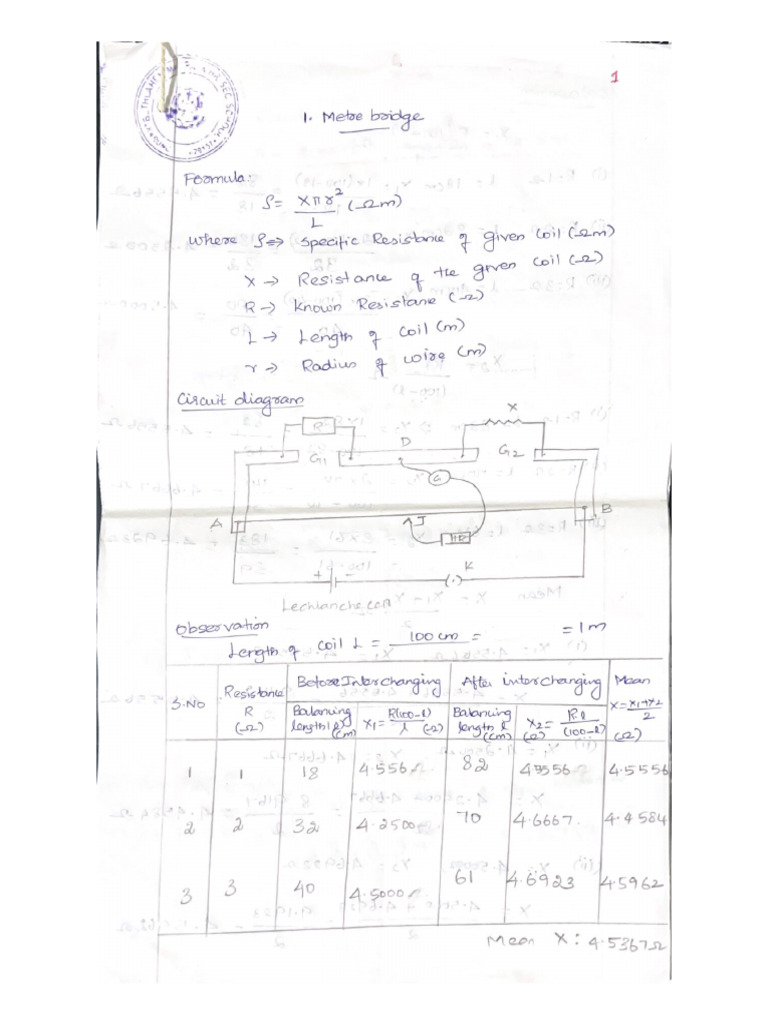 1
1. Metre bridge
Formula:
ρ = Xπr²/L (Ωm)
where ρ => specific Resistance of given coil (Ωm)
X → Resistance of the given coil (Ω)
R → known Resistane (Ω)
L → Length of coil (m)
r → Radius of wire (m)
Circuit diagram
R X
G1 D G2
G
A J B
HR
+ − K
Lechlanche cell
Observation
Length of coil L = 100 cm = = 1m
S.NO Resistance R (Ω) Before Interchanging After interchanging Mean X = X1+X2/2 (Ω)
Balancing length (l) (cm) X1 = R(100-l)/l (Ω) Balancing length l (cm) X2 = Rl/(100-l) (Ω)
1 1 18 4.556 82 4.5556 4.5556
2 2 32 4.2500 70 4.6667 4.4584
3 3 40 4.5000 61 4.6923 4.5962
Mean X: 4.5367Ω